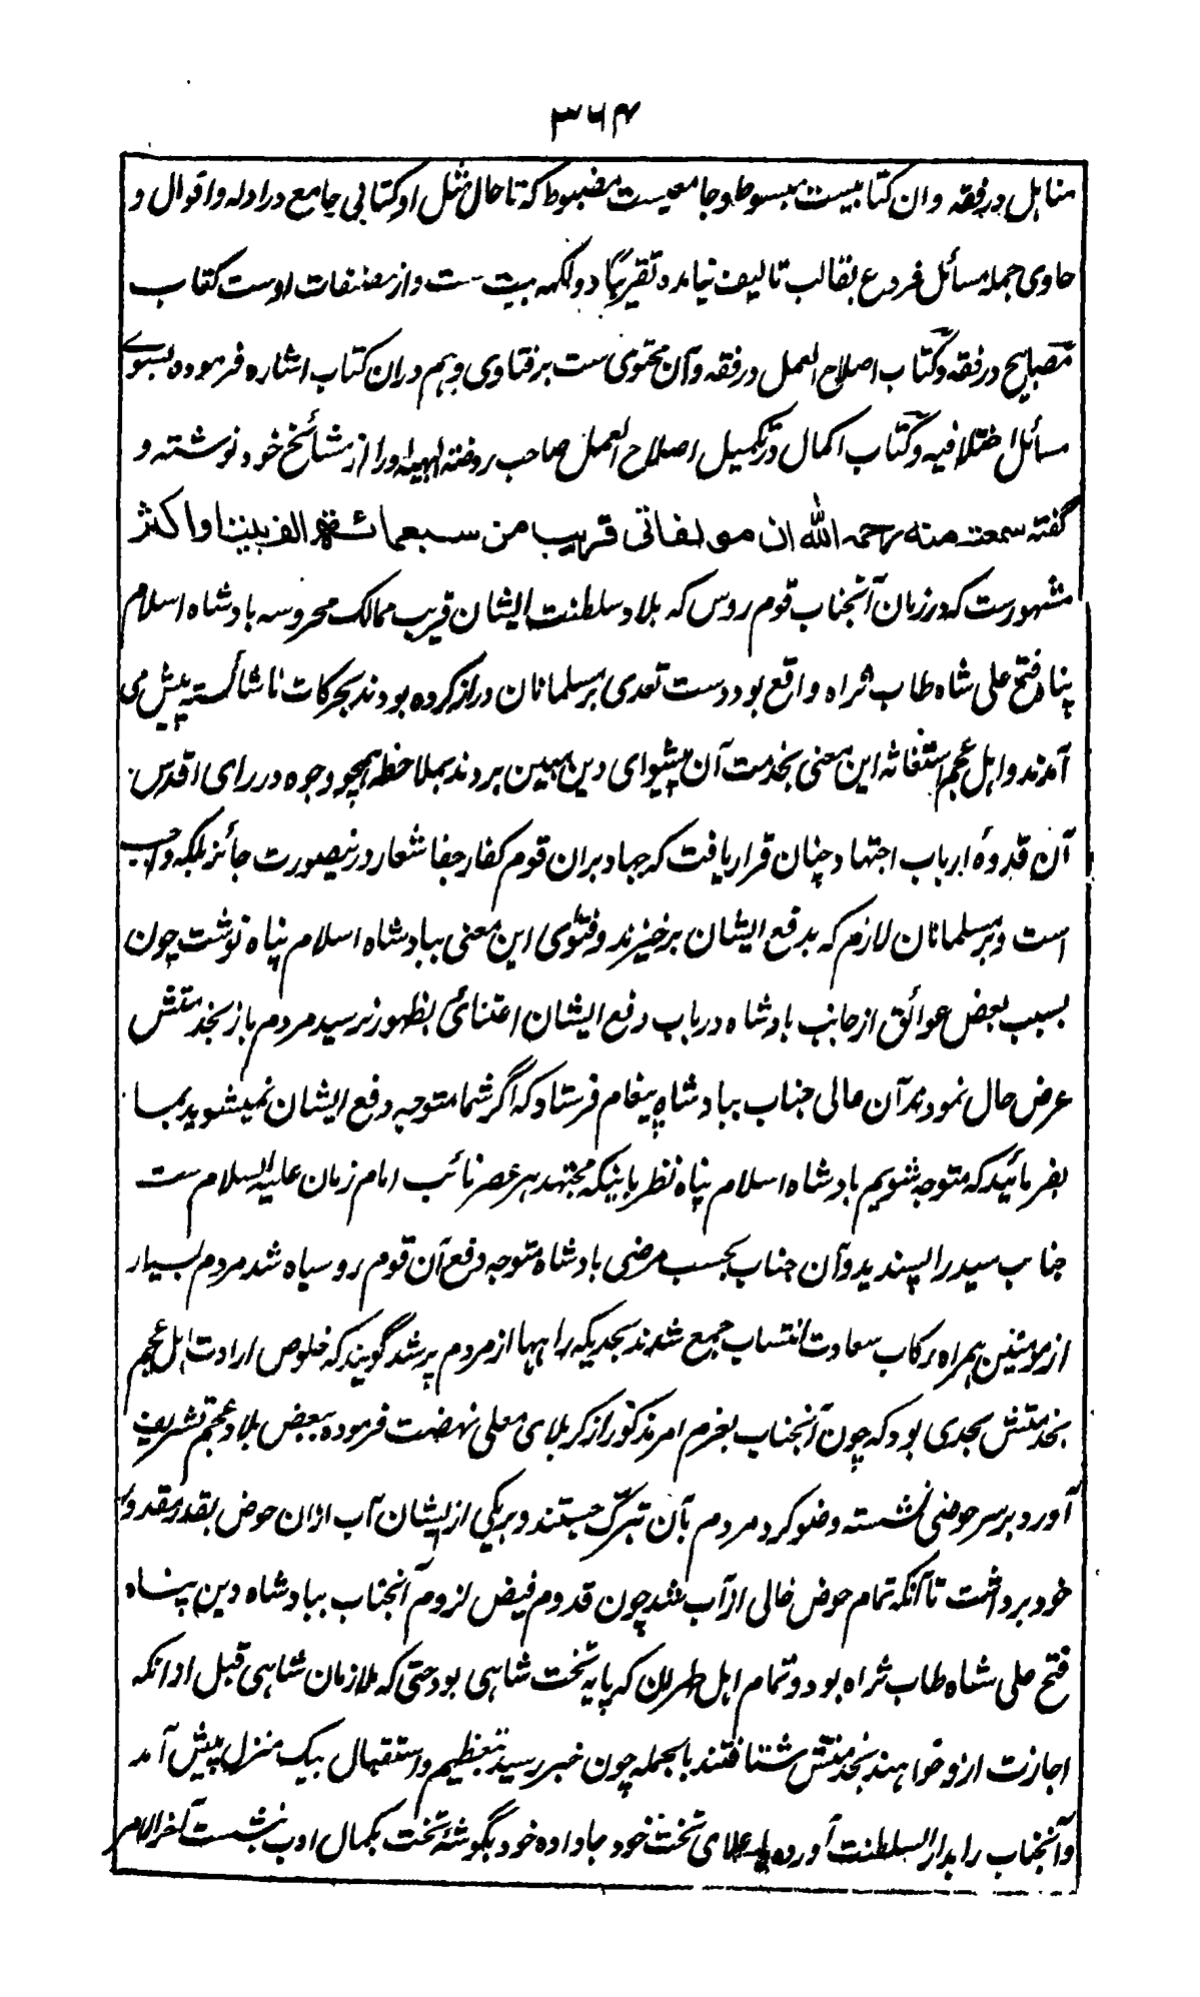 ۳۶۴
مناہل در فقہ و ان کتابیست مبسوط و جامعیست مضبوط کہ تا حال مثل او کتابی جامع در ادلہ و اقوال و
حاوی جملہ مسائل فروع بقالب تالیف نیامدہ تقریبًا دو لکہہ بیت ست و از مصنفات اوست کتاب
مصابیح در فقہ و کتاب اصلاح العمل در فقہ و آن محتوی ست بر فتاوی و ہم در ان کتاب اشارہ فرمودہ بسوے
مسائل اختلافیہ و کتاب اکمال در تکمیل اصلاح العمل صاحب روضۃ البہیہ او را از مشائخ خود نوشتہ و
گفتہ سمعت منہ رحمہ اللہ ان مولفاتی قریب من سبعمائۃ الف بیتا و اکثر
مشہورست کہ در زمان آنجناب قوم روس کہ بلاد سلطنت ایشان قریب ممالک محروسہ بادشاہ اسلام
پناہ فتح علی شاہ طاب ثراہ واقع بود دست تعدی بر مسلمانان دراز کردہ بودند بحرکات ناشائستہ پیش می
آمدند و اہل عجم ستغاثہ این معنی بخدمت آن پیشوای دین مبین بردند بملاحظہ ہمچو وجوہ در رای اقدس
آن قدوۂ ارباب اجتہاد چنان قرار یافت کہ جہاد بران قوم کفار جفا شعار درینصورت جائز بلکہ واجب
است و بر مسلمانان لازم کہ بدفع ایشان برخیزند و فتوٰی این معنی ببادشاہ اسلام پناہ نوشت چون
بسبب بعض عوائق از جانب بادشاہ در باب دفع ایشان اعتنائی بظہور نرسید مردم باز بخدمتش
عرض حال نمودند آن عالی جناب ببادشاہ پیغام فرستاد کہ اگر شما متوجہ دفع ایشان نمیشوید بما
بفرمائید کہ متوجہ شویم بادشاہ اسلام پناہ نظر باینکہ مجتہد ہر عصر نائب امام زمان علیہ السلام ست
جناب سید را پسندید و آن جناب بحسب مرضی بادشاہ متوجہ دفع آن قوم رو سیاہ شد مردم بسیار
از مومنین ہمراہ رکاب سعادت انتساب جمع شدند بحدیکہ راہہا از مردم پر شد گویند کہ خلوص ارادت اہل عجم
بخدمتش بحدی بود کہ چون آنجناب بعزم امر مذکور از کربلای معلی نہضت فرمودہ ببعض بلاد عجم تشریف
آورد و بر سر حوضی نشستہ وضو کرد مردم بآن تبرک جستند و ہر یکی از ایشان آب ازان حوض بقدر مقدور
خود برداشت تا آنکہ تمام حوض خالی از آب شد چون قدوم فیض لزوم آنجناب ببادشاہ دین پناہ
فتح علی شاہ طاب ثراہ بود و تمام اہل طہران کہ پایہ تخت شاہی بود حتی کہ ملازمان شاہی قبل ازانکہ
اجازت ازو خواہند بخدمتش شتافتند بالجملہ چون خبر رسید بتعظیم و استقبال بیک منزل پیش آمد
و آنجناب را بدار السلطنت آوردہ باعلای تخت خود جا دادہ خود بگوشۂ تخت بکمال ادب بنشست آخر الامر